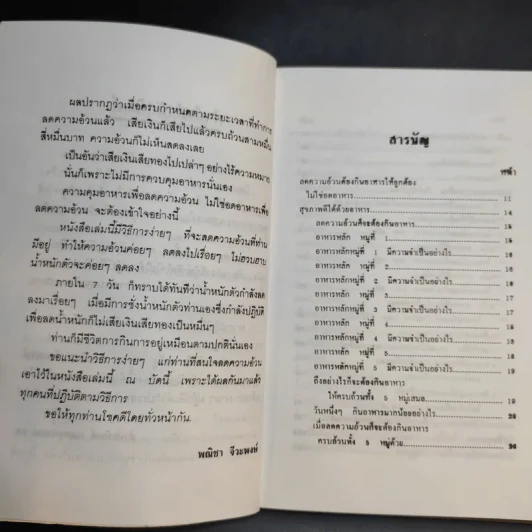 ผลปรากฏว่าเมื่อครบกำหนดตามระยะเวลาที่ทำการ
ลดความอ้วนแล้ว เสียเงินก็เสียไปแล้วครบถ้วนสามหมื่น
สี่หมื่นบาท ความอ้วนก็ไม่เห็นลดลงเลย
เป็นอันว่าเสียเงินเสียทองไปเปล่าๆ อย่างไร้ความหมาย
นั่นก็เพราะไม่มีการควบคุมอาหารนั่นเอง
ความคุมอาหารเพื่อลดความอ้วน ไม่ใช่อดอาหารเพื่อ
ลดความอ้วน จะต้องเข้าใจอย่างนี้
หนังสือเล่มนี้มีวิธีการง่ายๆ ที่จะลดความอ้วนที่ท่าน
มีอยู่ ทำให้ความอ้วนค่อยๆ ลดลงไปเรื่อยๆ ไม่ฮวบฮาบ
น้ำหนักตัวจะค่อยๆ ลดลง
ภายใน 7 วัน ก็ทราบได้ทันทีว่าน้ำหนักตัวกำลังลด
ลงมาเรื่อยๆ เมื่อมีการชั่งน้ำหนักตัวท่านเองซึ่งกำลังปฏิบัติ
เพื่อลดน้ำหนักก็ไม่เสียเงินเสียทองเป็นหมื่นๆ
ท่านก็มีชีวิตการกินการอยู่เหมือนตามปกตินั่นเอง
ขอแนะนำวิธีการง่ายๆ แก่ท่านที่สนใจลดความอ้วน
เอาไว้ในหนังสือเล่มนี้ ณ บัดนี้ เพราะได้ผลกันมาแล้ว
ทุกคนที่ปฏิบัติตามวิธีการ
ขอให้ทุกท่านโชคดีโดยทั่วหน้ากัน.
พณิชา จีวะพงษ์
สารบัญ
หน้า
ลดความอ้วนต้องกินอาหารให้ถูกต้อง
ไม่ใช่อดอาหาร 11
สุขภาพดีได้ด้วยอาหาร 14
ลดความอ้วนก็จะต้องกินอาหาร 15
อาหารหลัก หมู่ที่ 1 15
อาหารหลักหมู่ที่ 1 มีความจำเป็นอย่างไร 16
อาหารหลัก หมู่ที่ 2 16
อาหารหลักหมู่ที่ 2 มีความจำเป็นอย่างไร
อาหารหลัก หมู่ที่ 3
อาหารหลักหมู่ที่ 3 มีความจำเป็นอย่างไร
อาหารหลัก หมู่ที่ 4
อาหารหลักหมู่ที่ 4 มีความจำเป็นอย่างไร 18
อาหารหลัก หมู่ที่ 5 18
อาหารหลักหมู่ที่ 5 มีความจำเป็นอย่างไร 19
ถึงอย่างไรก็จะต้องกินอาหาร
ให้ครบถ้วนทั้ง 5 หมู่เสมอ 19
วันหนึ่งๆ กินอาหารมากน้อยอย่างไร 20
เมื่อลดความอ้วนก็จะต้องกินอาหาร
ครบถ้วนทั้ง 5 หมู่ด้วย